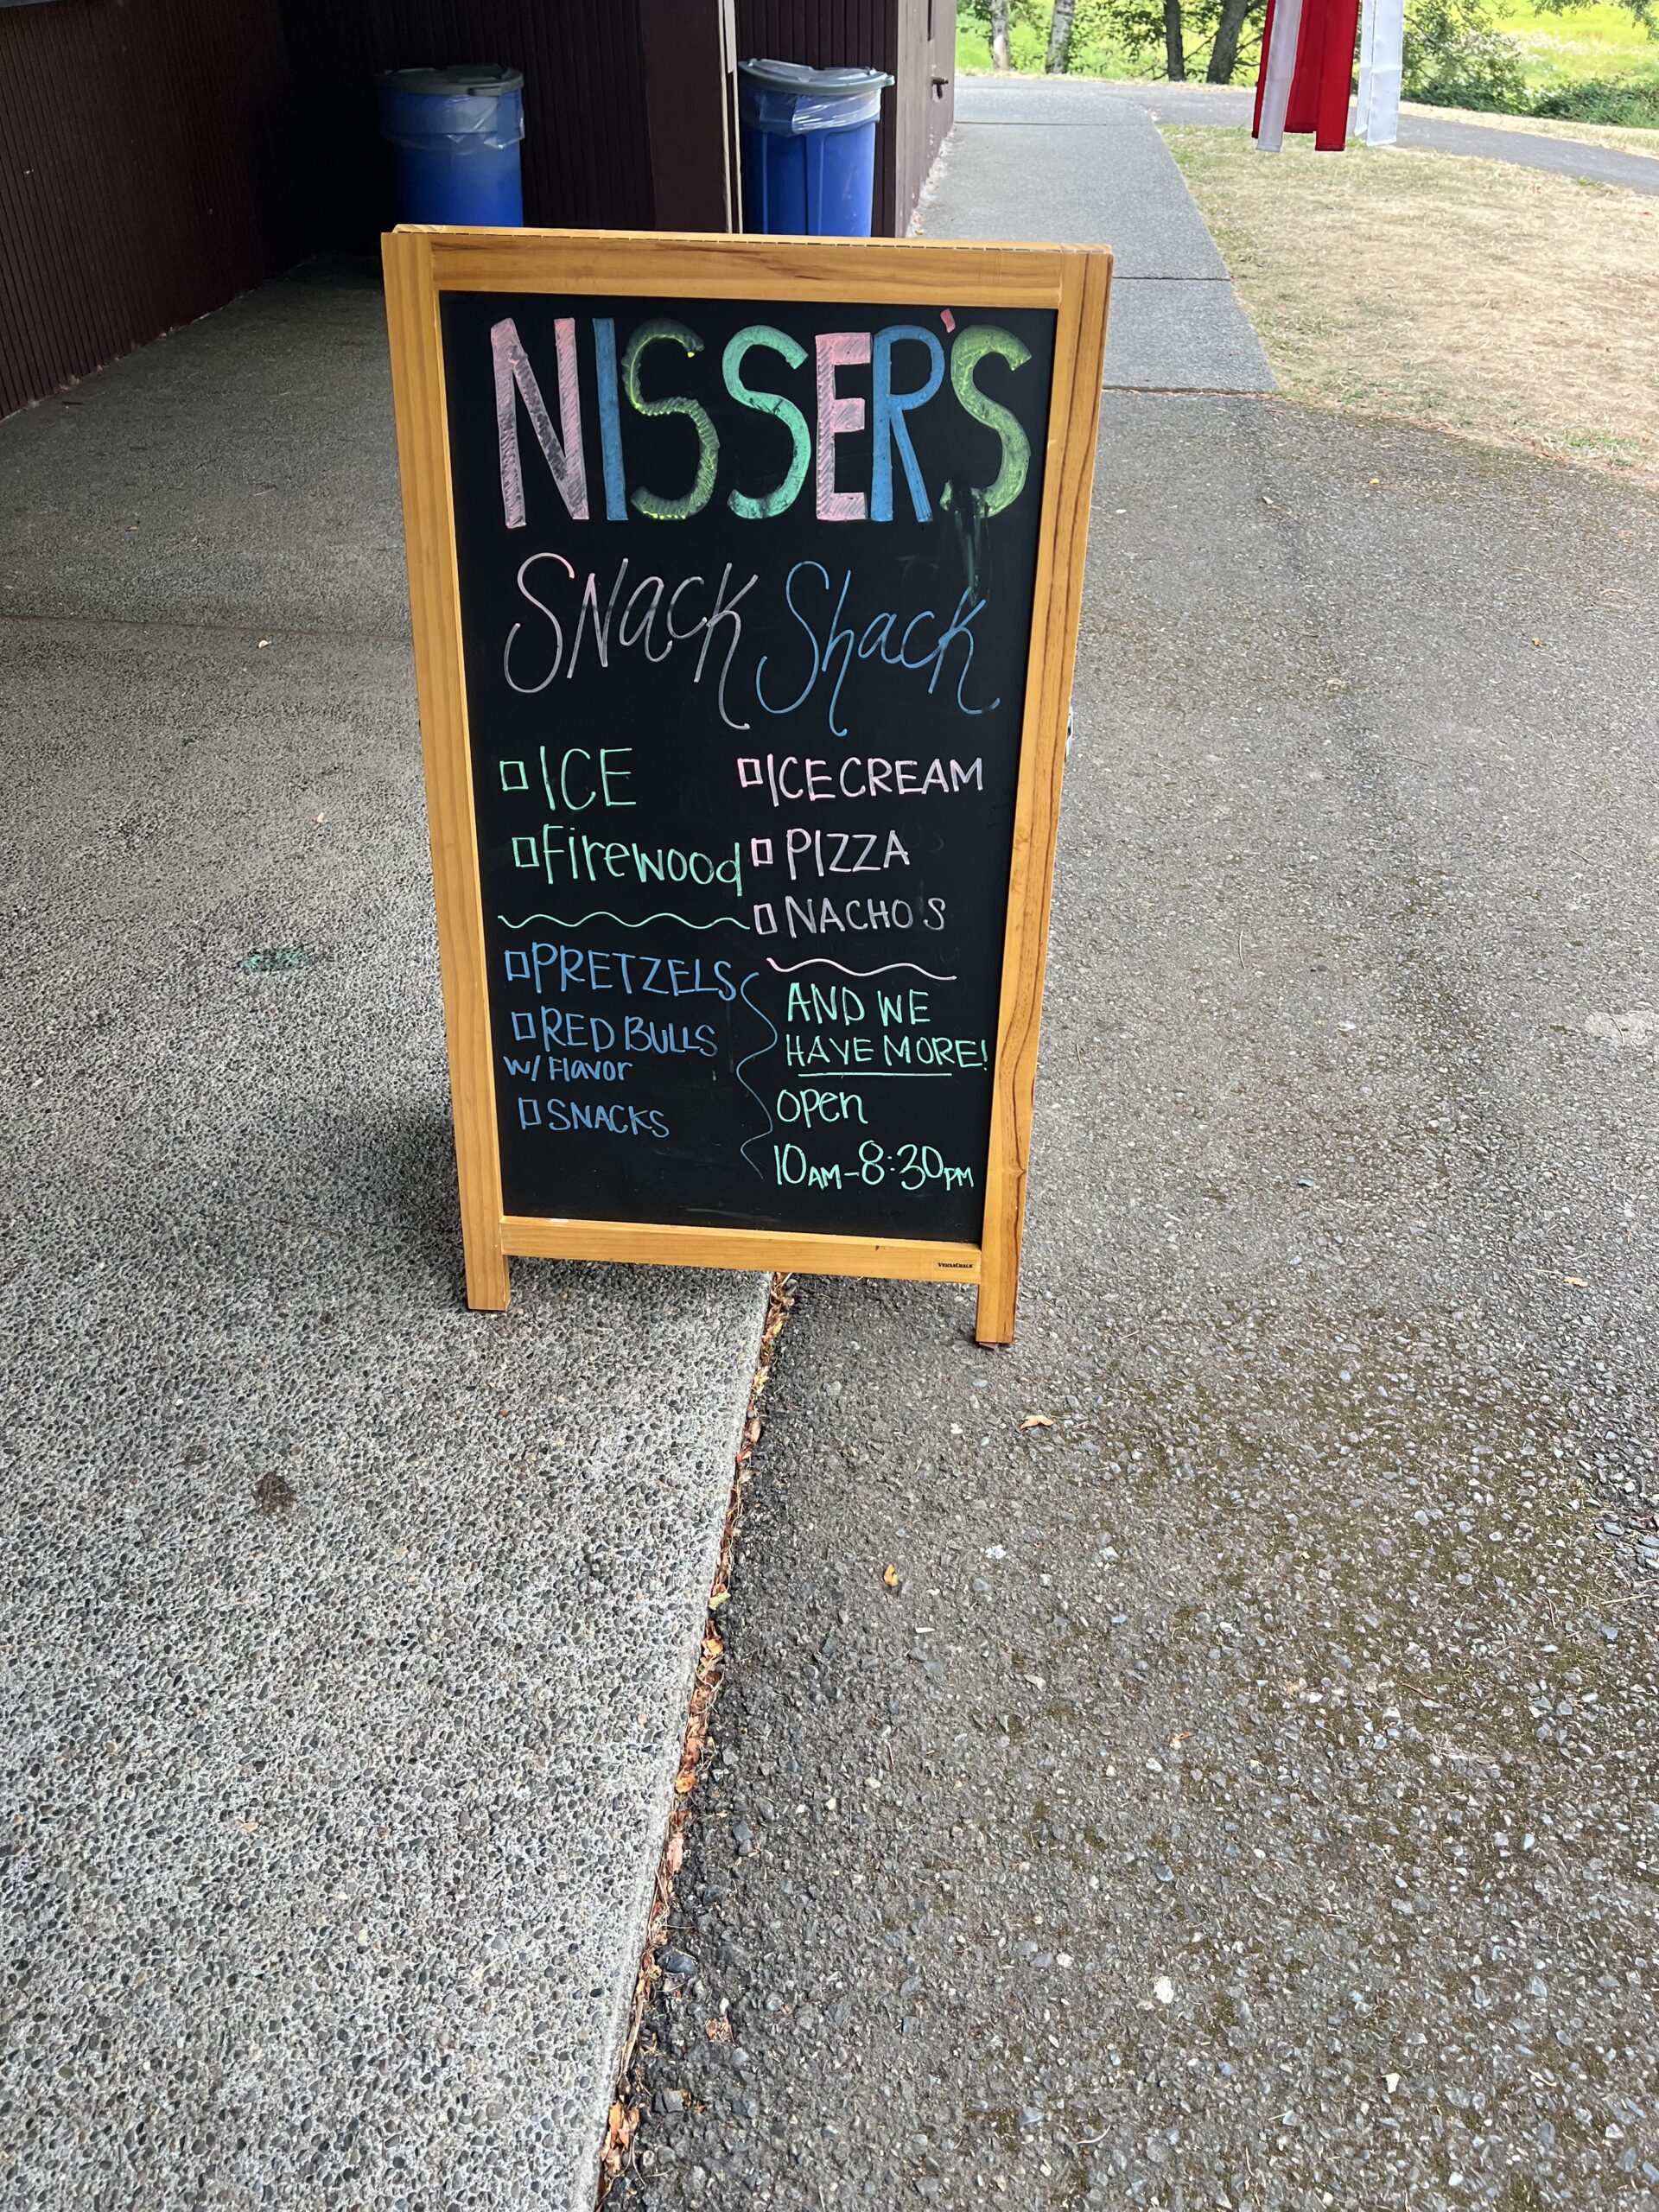 NISSER'S
Snack Shack
ICE
Firewood
PRETZELS
RED BULLS
W/ Flavor
SNACKS
ICECREAM
PIZZA
NACHO'S
AND WE
HAVE MORE!
open
10AM-8:30PM
VERSACHALK